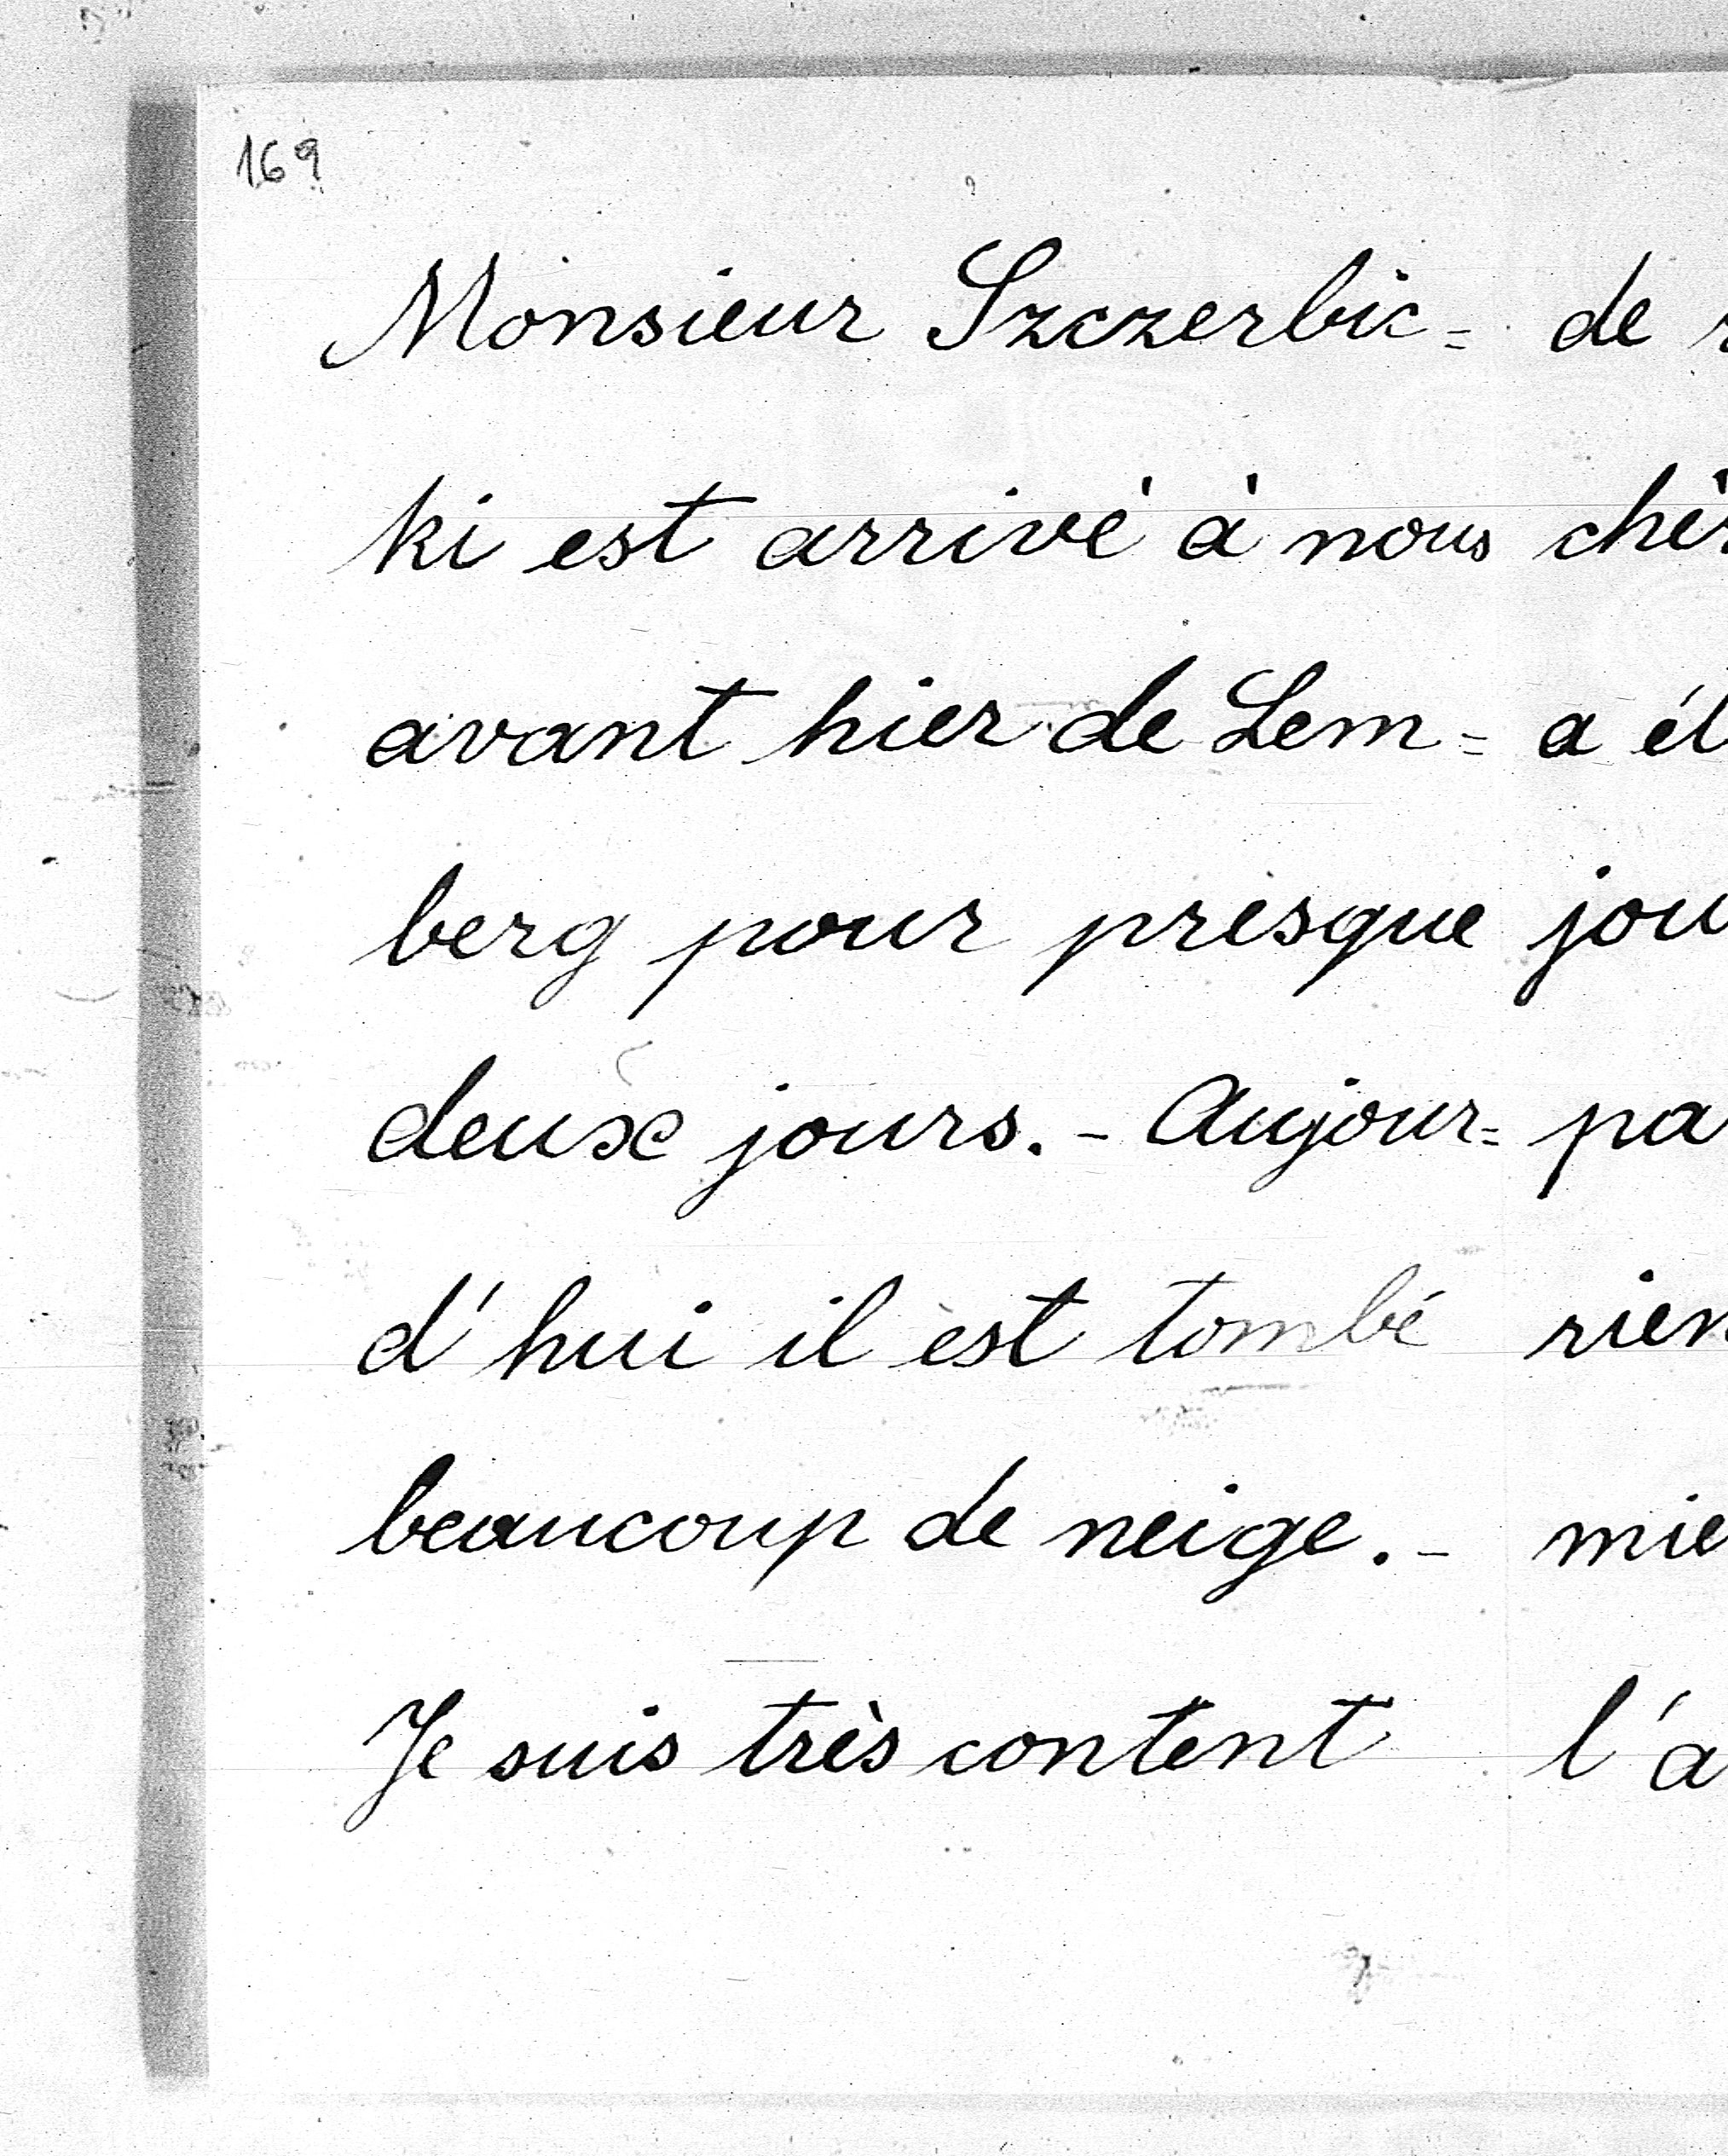 169
Monsieur Szczerbic=
ki est arrivé à nous
avant hier de Lem=
berg pour presque
deux jours. - Aujour=
d'hui il est tombé
beaucoup de neige. -
Je suis très content
de
a
l'a